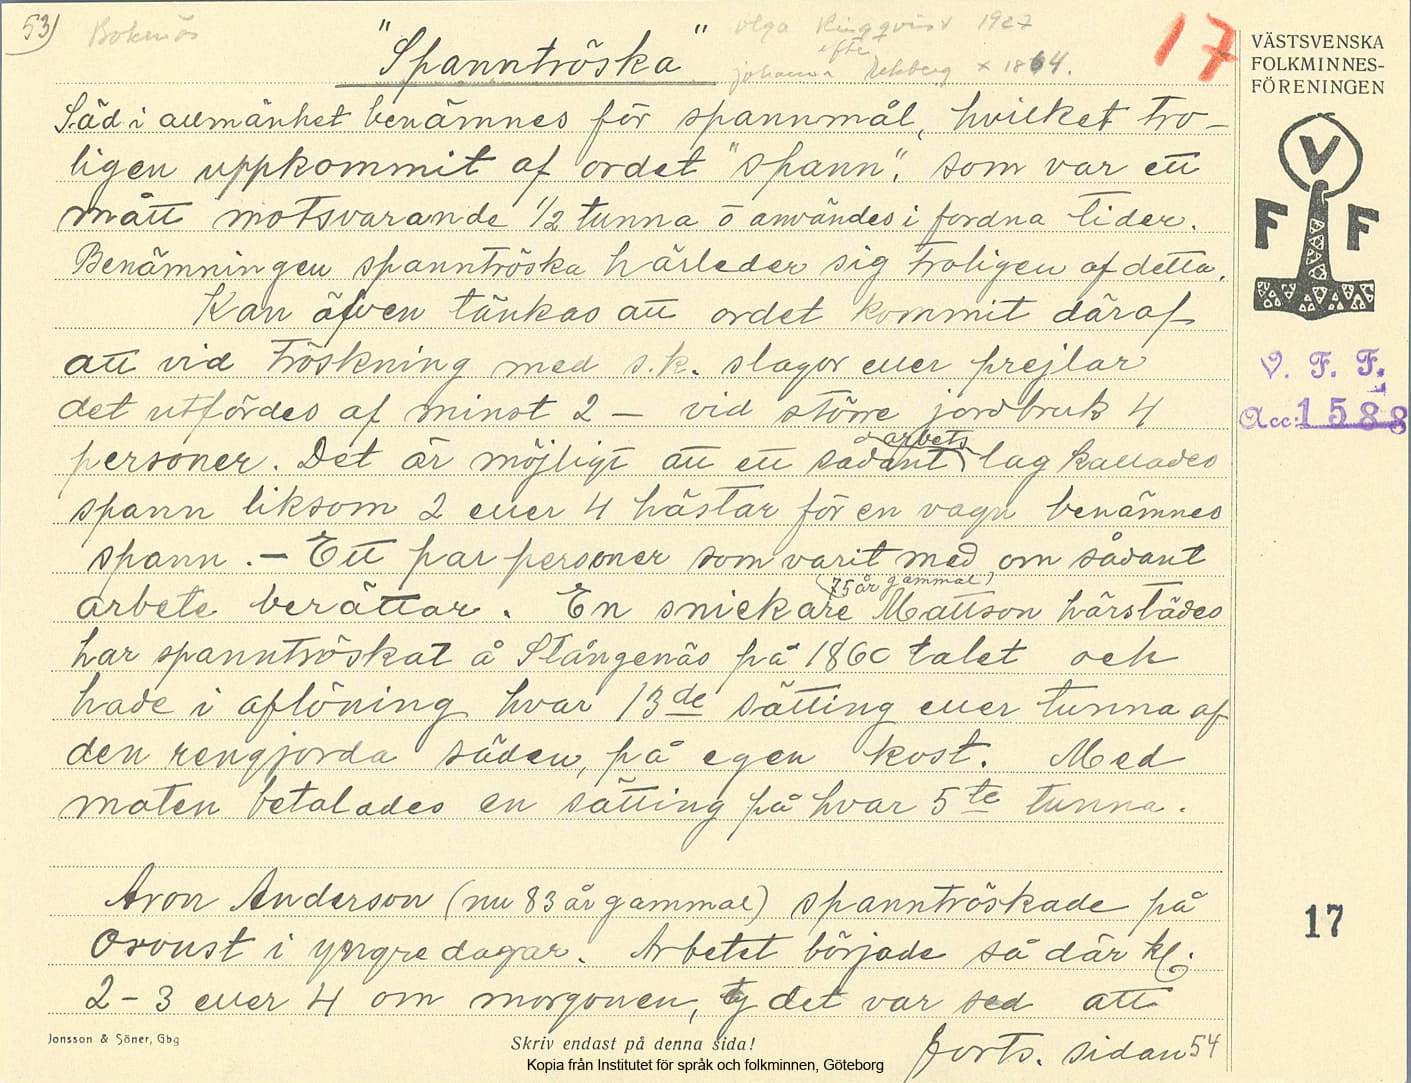 53)
Bokenäs
"Spanntröska"
Olga Ringqvist 1927
efter
Johanna Rehberg × 1864.
17
VÄSTSVENSKA
FOLKMINNES-
FÖRENINGEN
Säd i allmänhet benämnes för spannmål, hvilket tro-
ligen uppkommit af ordet "spann", som var ett
mått motsvarande 1/2 tunna o användes i fordna tider.
Benämningen spanntröska härleder sig troligen af detta.
Kan äfven tänkas att ordet kommit däraf
att vid tröskning med s.k. slagor eller prejlar
det utfördes af minst 2 – vid större jordbruk 4
personer. Det är möjligt att ett sådant arbets lag kallades
spann liksom 2 eller 4 hästar för en vagn benämnes
spann. – Ett par personer som varit med om sådant
arbete berättar. En snickare Mattson (75 år gammal) härstädes
har spanntröskat å Stångenäs på 1860 talet och
hade i aflöning hvar 13de sätting eller tunna af
den rengjorda säden, på egen kost. Med
maten betalades en sätting på hvar 5te tunna.
Aron Anderson (nu 83 år gammal) spanntröskade på
Oroust i yngre dagar. Arbetet började så där kl.
2 – 3 eller 4 om morgonen, ty det var sed att
Forts. sidan 54
V
F F
V. F. F.
Acc: 1588
17
Jonsson & Söner, Gbg
Skriv endast på denna sida!
Kopia från Institutet för språk och folkminnen, Göteborg